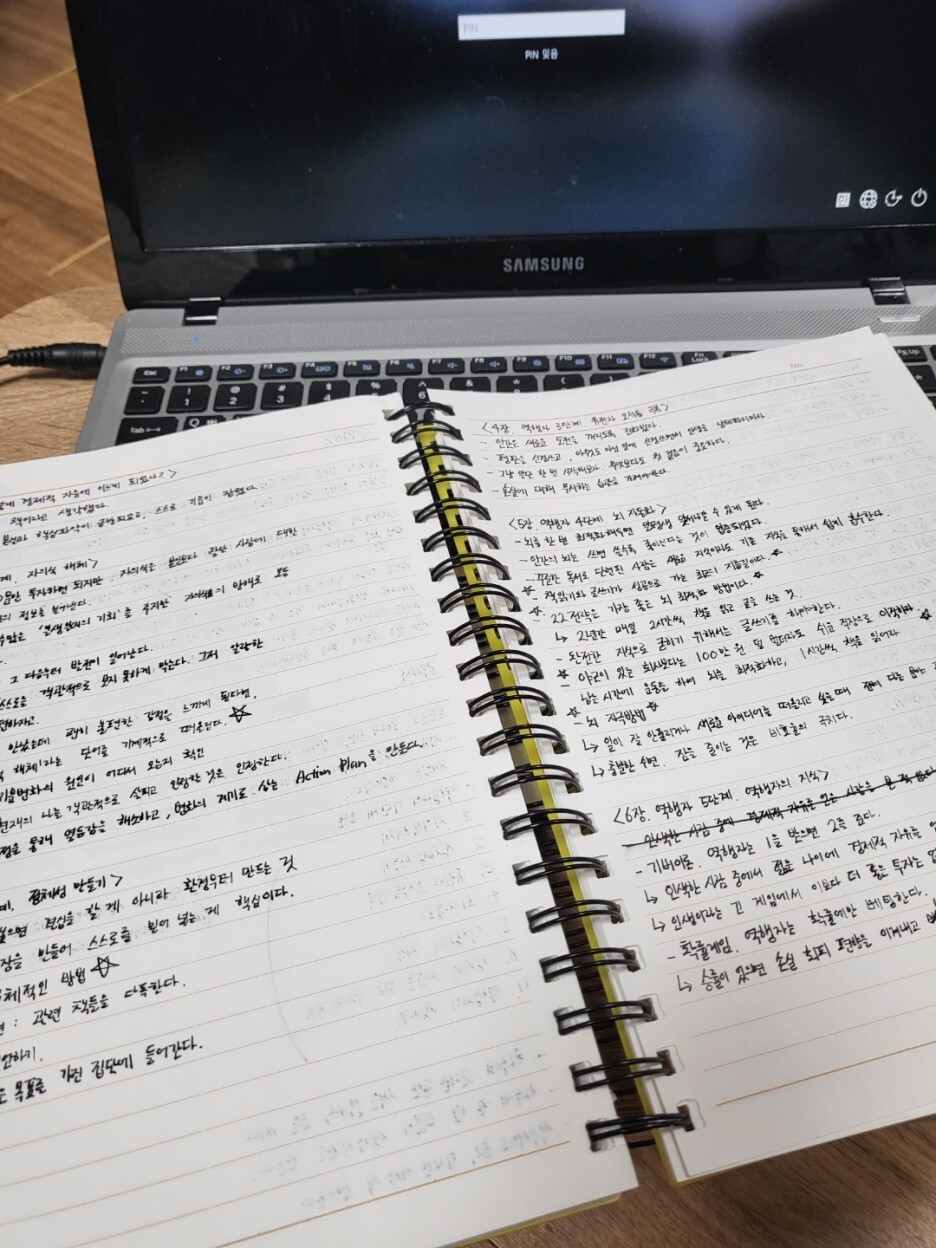 PIN
PIN 잊음
SAMSUNG
Esc F1 F2 F3 F4 F5 F6 F7 F8 F9 F10 F11 F12 Fn Lock Pg Up
Tab Q
6
No.
게 경제적 자유에 이르게 되었나?>
책이라고 생각했다.
본연과 핵심파악이 금방 되었고, 스스로 기름이 잡혔다.
계. 자의식 해체>
만 투자하면 되지만 자의식은 본인보다 잘난 사람에 대한
의 정보를 밀어낸다.
수많은 '인생 의 기회'를 자의식의 방해로 모두
그 다음부터 발전이 일어난다.
스스로를 객관적으로 보지 못하게 막는다. 그저 알량한
안났는데 괜히 불편한 감정을 느끼게 된다면,
해체'라는 단어를 기계적으로 떠올린다. ☆
기분변화의 원인이 어디서 오는지 확인
현재의 나를 객관적으로 살피고 인정할 것은 인정한다.
점을 통해 열등감을 해소하고, 변화의 계기로 삼는 Action Plan을 만든다.
계. 정체성 만들기>
싶으면 결심을 할 게 아니라 환경부터 만드는 것
장을 만들어 스스로를 밀어 넣는 게 핵심이다.
구체적인 방법 ☆
: 관련 책들을 다독한다.
언하기.
목표를 가진 집단에 들어간다.
<4장. 역행자 3단계. 유전자 오작동 극복>
- 인간은 새로운 도전을 꺼리도록 진화했다.
- 평판을 신경쓰고, 아무것도 아닌 일에 신경쓰면서 인생을 낭비하지마라.
- 그냥 딱 한 번 시작해보자. 무엇보다도 첫 걸음이 중요하다.
- 손실에 대해 무시하는 습관을 가져야한다.
<5장. 역행자 4단계. 뇌 자동화>
- 뇌를 한 번 최적화 해두면 열등생도 앞서나갈 수 있게 된다.
- 인간의 뇌는 쓰면 쓸수록 좋아진다는 것이 입증되었다.
- 꾸준한 독서로 단련된 사람은 새로운 지식이라도 기존 지식을 통해서 쉽게 흡수한다.
☆ - 책읽기와 글쓰기가 성공으로 가는 최고의 지름길이다. ☆
☆ - 22전략은 가장 좋은 뇌 최적화 방법이다. ☆
↳ 2년간 매일 2시간씩, 책을 읽고 글을 쓰는 것.
- 완전한 지식으로 굳히기 위해서는 글쓰기를 해야한다.
☆ - 야근이 있는 회사보다는 100만 원 덜 벌더라도 쉬운 직장으로 이직하라 ☆
남는 시간에 운동을 하여 뇌를 최적화하고, 1시간씩 책을 읽어라
☆ - 뇌 자극방법 ☆
↳ 일이 잘 안풀리거나 새로운 아이디어를 떠올리고 싶을 때, 잠이
↳ 충분한 수면. 잠을 줄이는 것은 비효율의 극치다.
<6장. 역행자 5단계. 역행자의 지식>
- 인색한 사람 중에 경제적 자유를 얻은 사람을 본 적 없다
- 기버이론. 역행자는 1을 받으면 2를 준다.
↳ 인색한 사람 중에서 젊은 나이에 경제적 자유를 얻
↳ 인생이라는 긴 게임에서 이보다 더 좋은 투자는 없
- 확률게임. 역행자는 확률에만 베팅한다.
↳ 승률이 있으면 손실 회피 편향을 이겨내고